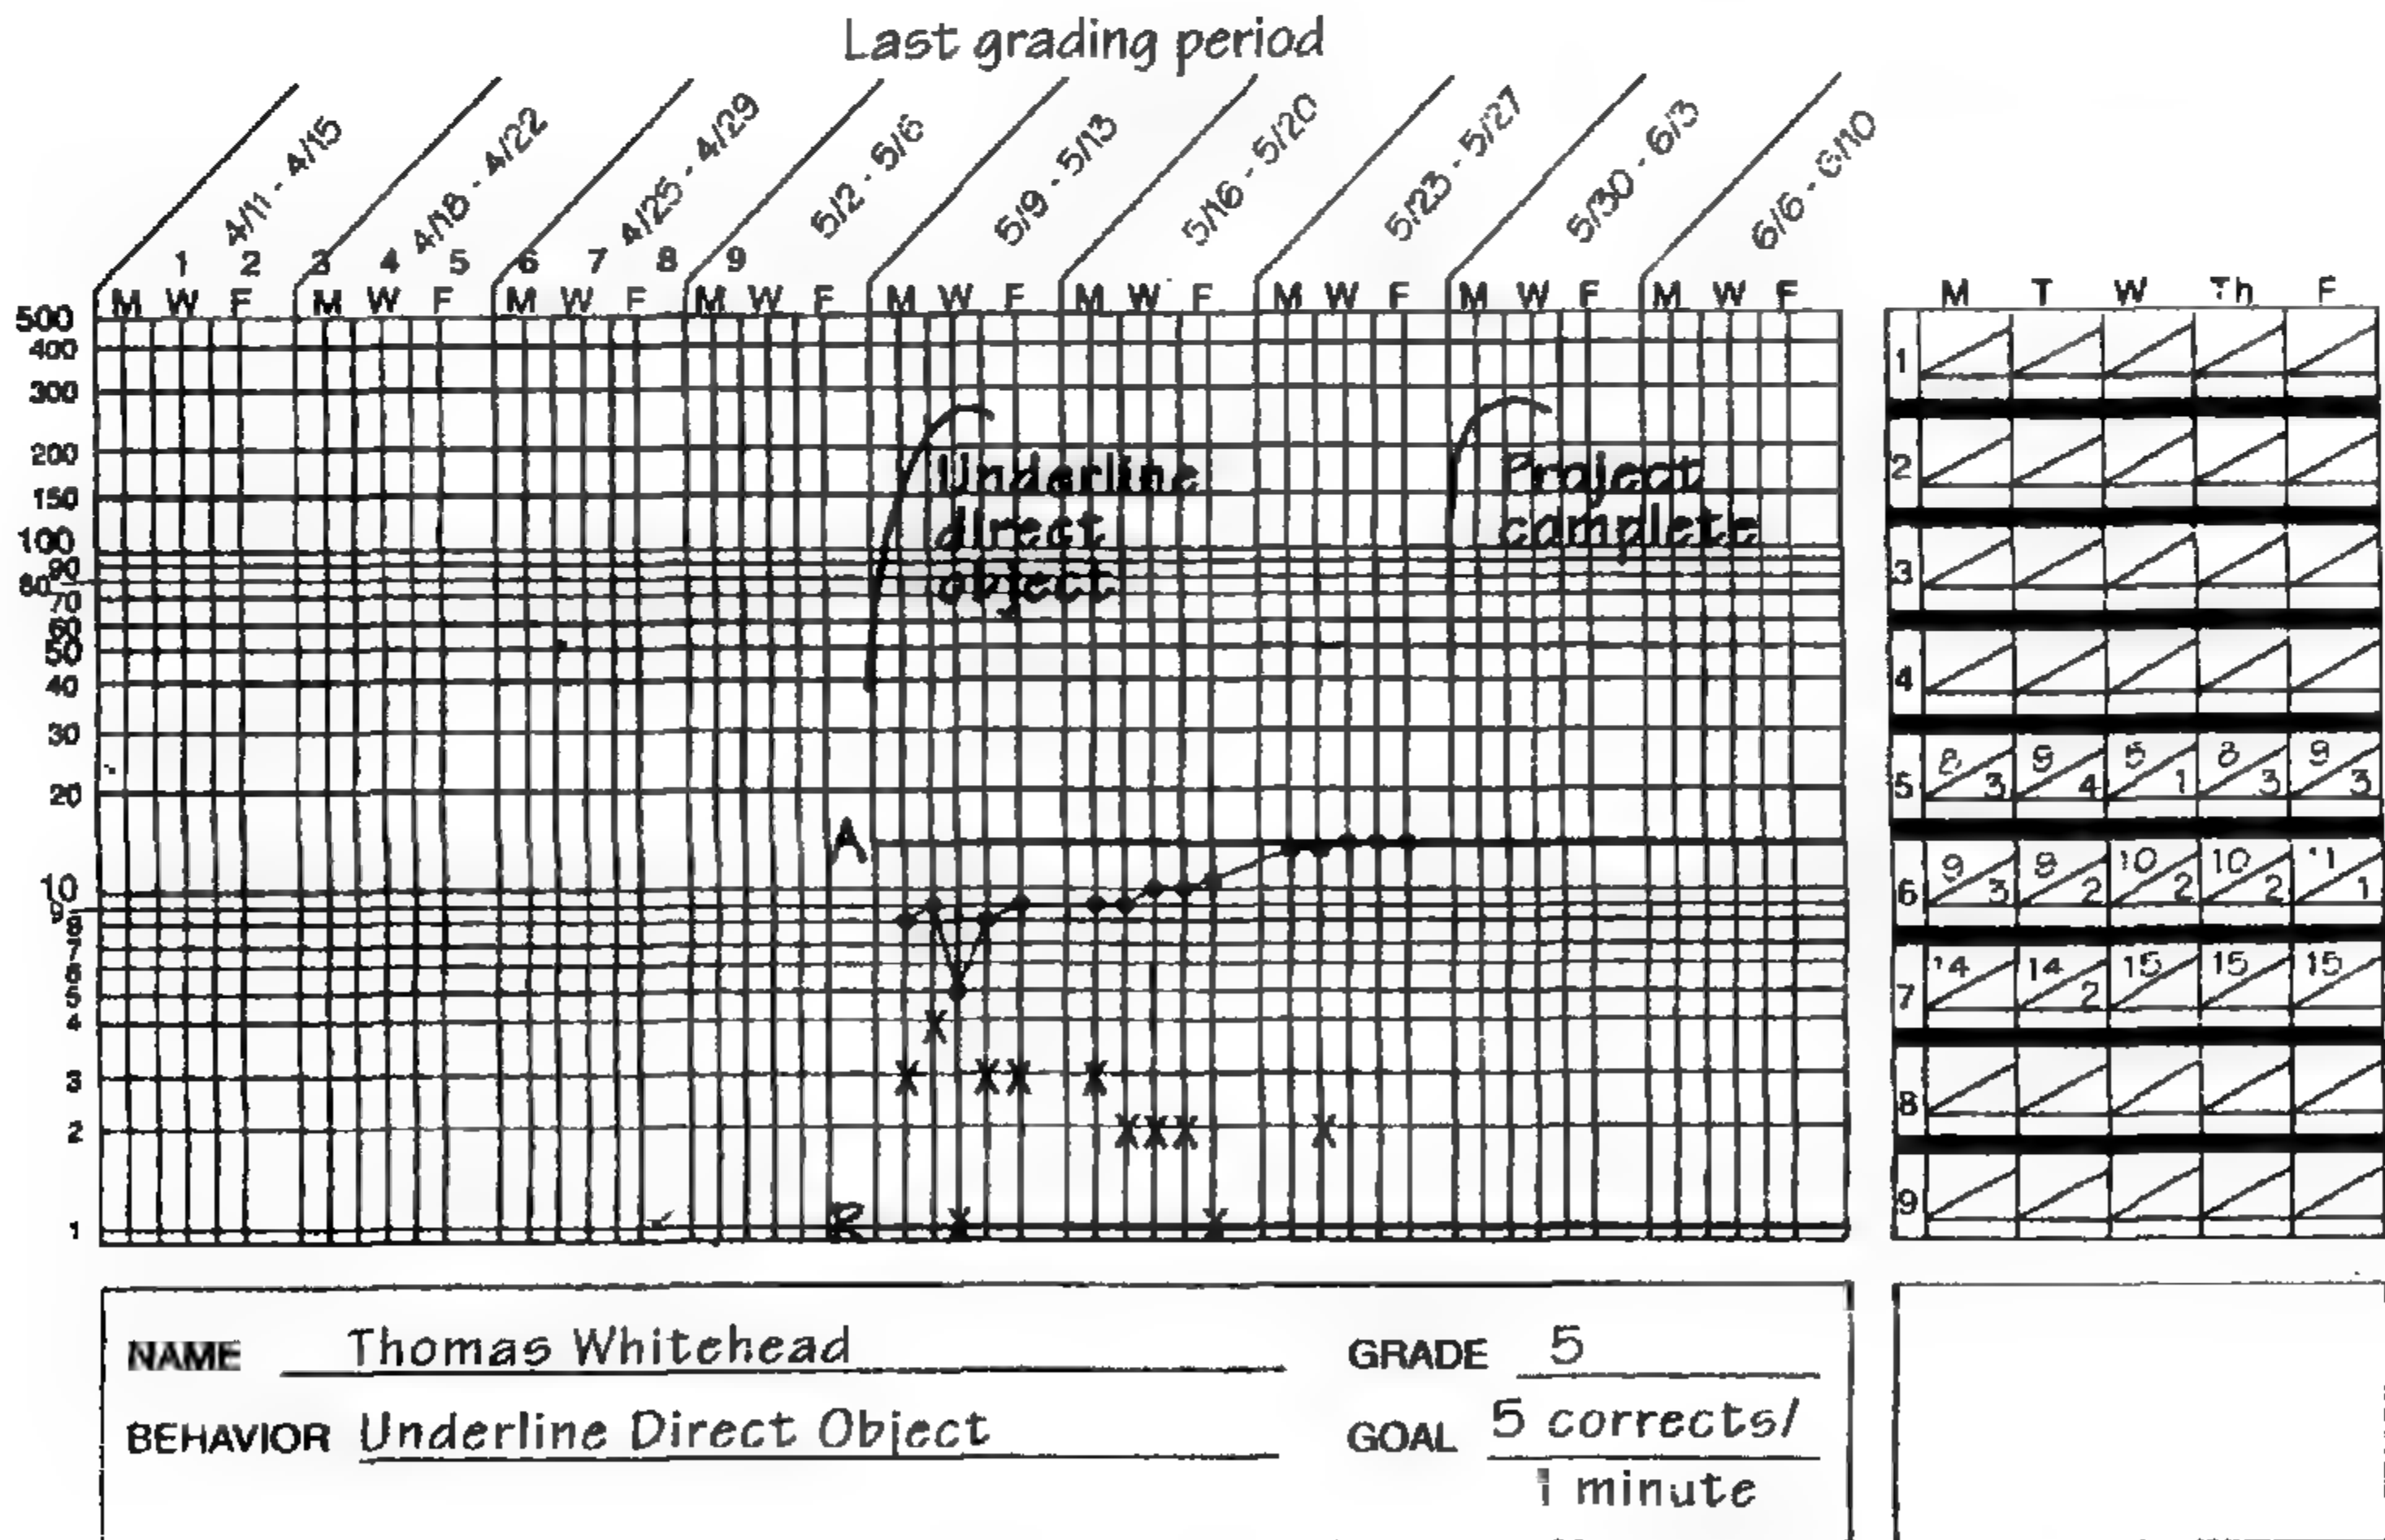 Last grading period
4/11 - 4/15 4/18 - 4/22 4/25 - 4/29 5/2 - 5/6 5/9 - 5/13 5/16 - 5/20 5/23 - 5/27 5/30 - 6/3 6/6 - 6/10
1 2 3 4 5 6 7 8 9
M W F M W F M W F M W F M W F M W F M W F M W F M W F
500
400
300
200
150
100
90
80
70
60
50
40
30
20
10
9
8
7
6
5
4
3
2
1
Underline
direct
object
Project
complete
A
R
M T W Th F
1
2
3
4
5 8 3 9 4 5 1 8 3 9 3
6 9 3 9 2 10 2 10 2 11 1
7 14 14 2 15 15 15
8
9
NAME Thomas Whitehead GRADE 5
BEHAVIOR Underline Direct Object GOAL 5 corrects/
1 minute